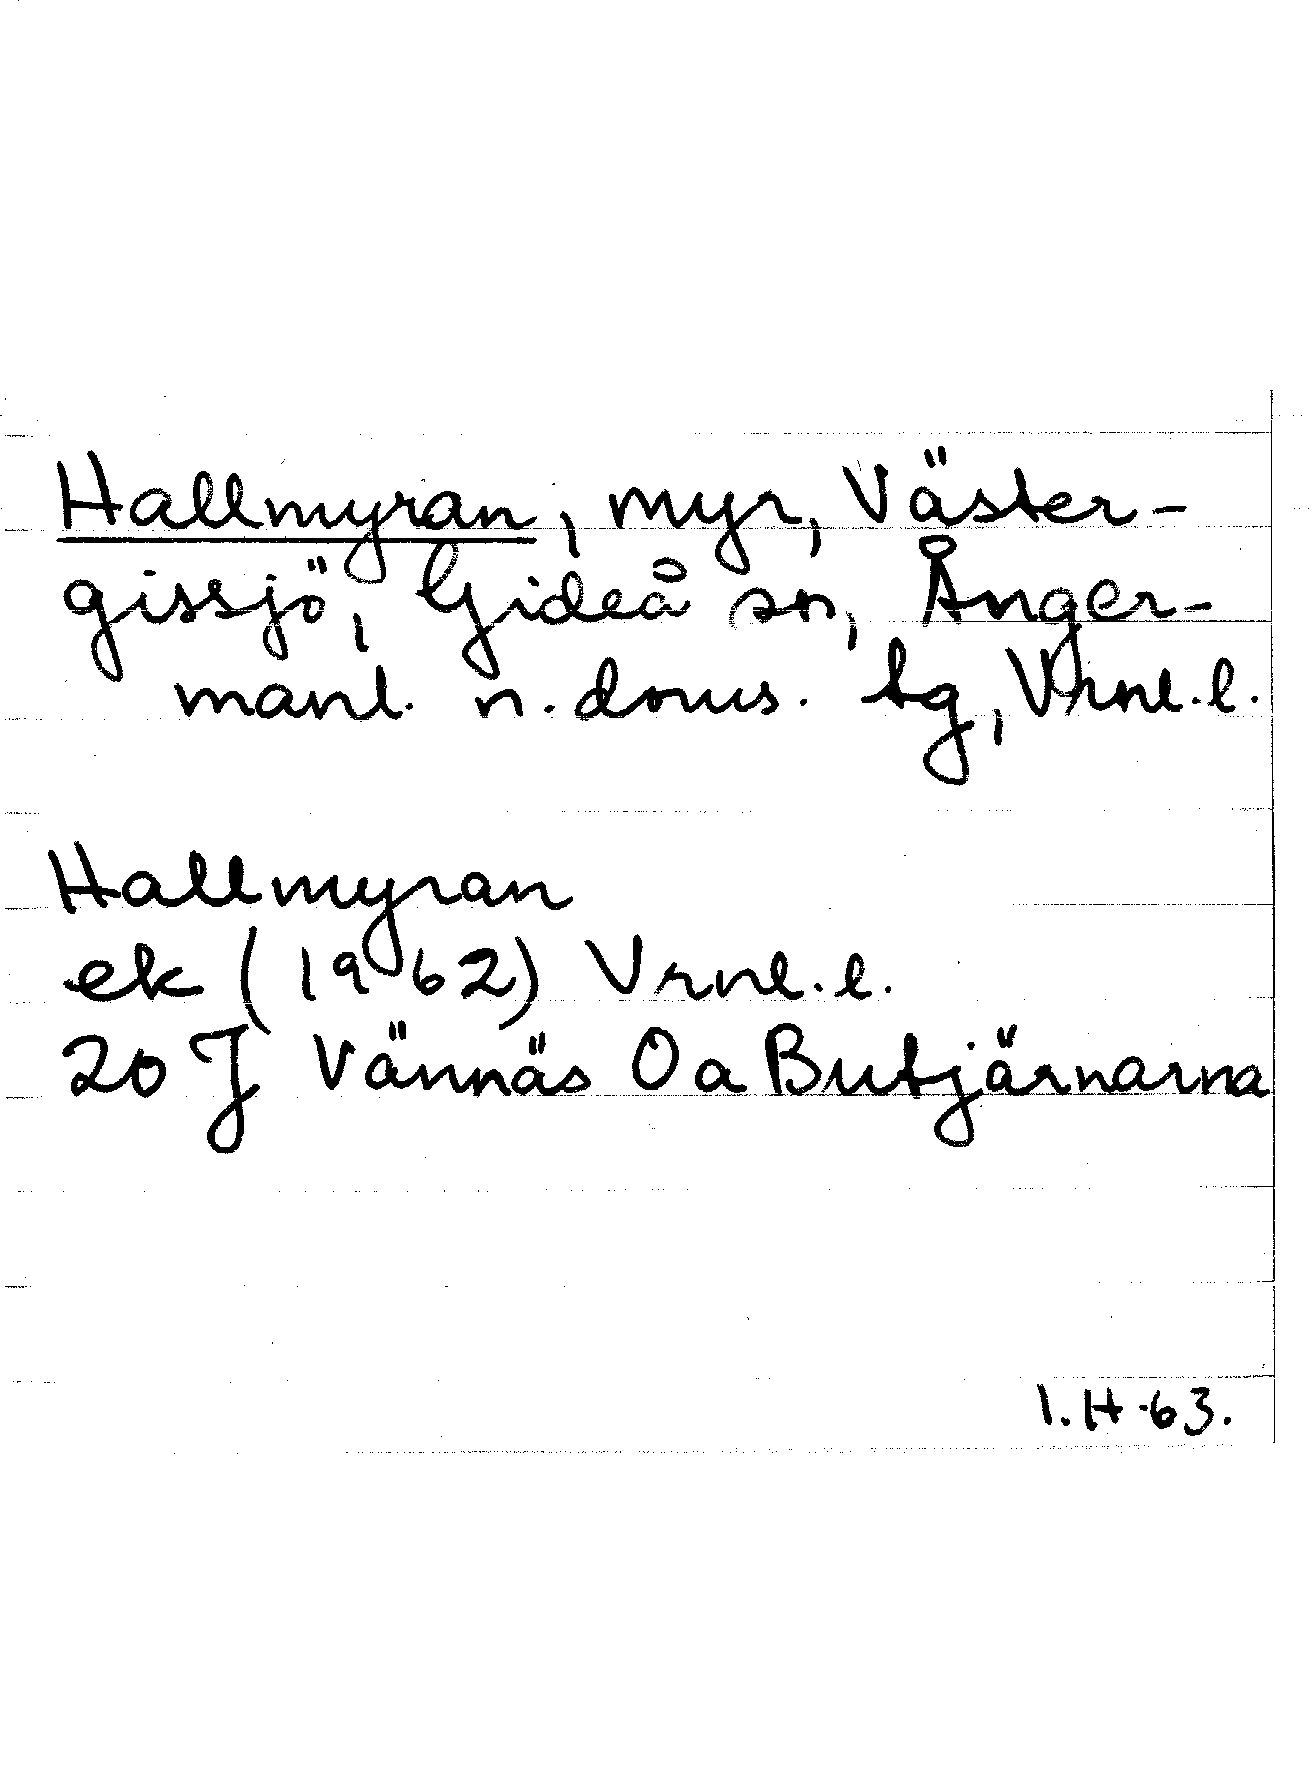 Hallmyran, myr, Väster-
gissjö, Gideå sn, Ånger-
manl. n. doms. tg, Vrnl. l.
Hallmyran
ek (1962) Vrnl. l.
20 J Vännäs O a Butjärnarna
I. H -63.